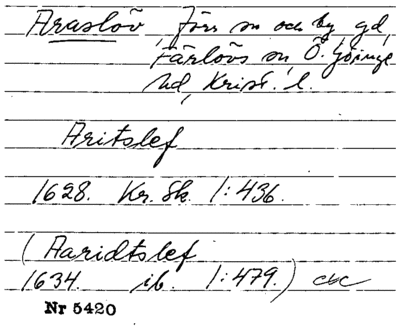 Araslöv, förr sn och by, gd,
Färlövs sn, Ö. Göinge
hd, Krist. l.
Aritslef
1628. Kr. Sk. 1:436.
(Aaridtslef
1634. ib. 1:479.)
Nr 5420